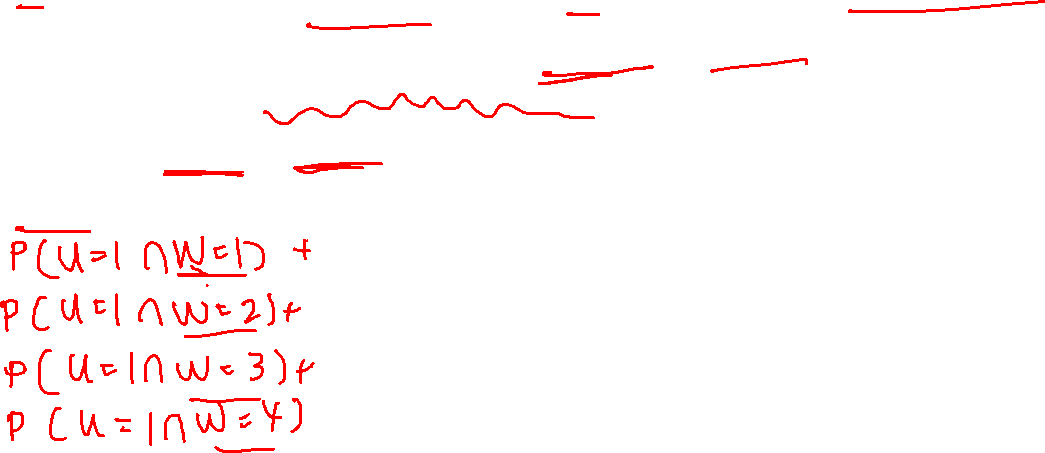 P(U=1∩W=1) +
P(U=1∩W=2)+
P(U=1∩W=3)+
P(U=1∩W=4)